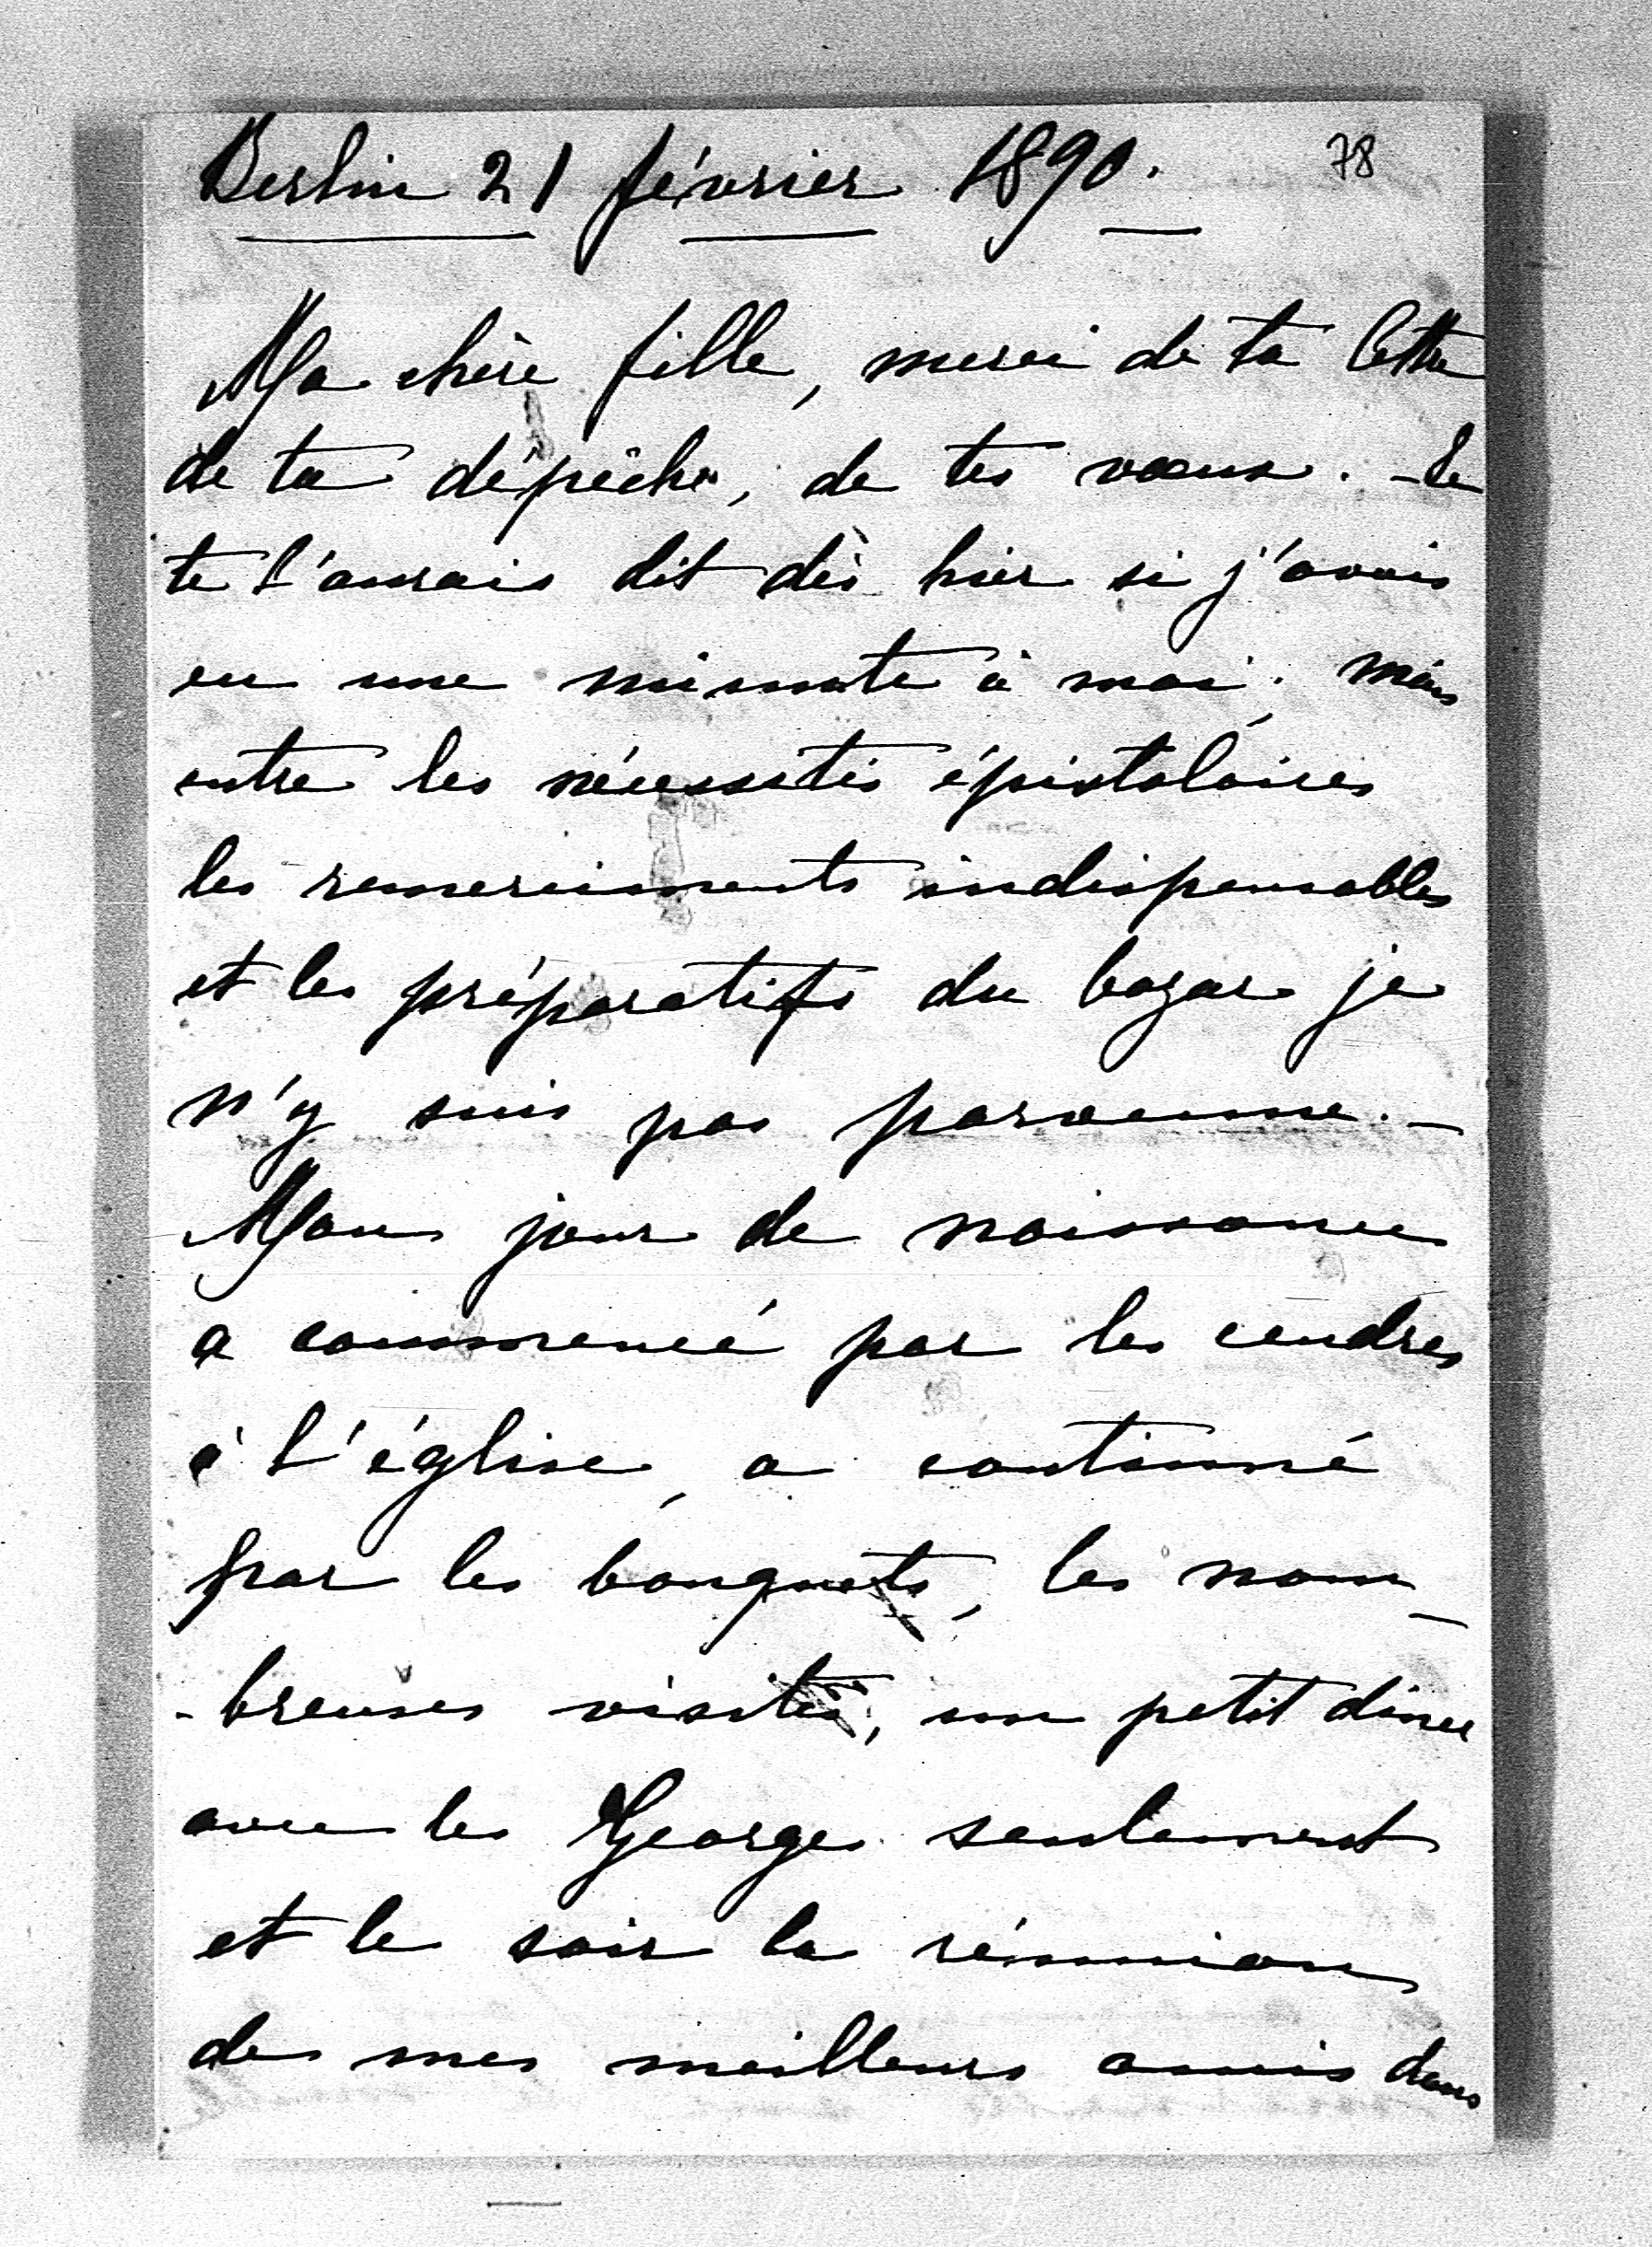 Berlin 21 février 1890.
78
Ma chère fille, merci de ta lettre
de ta dépêche, de tes vœux. - Je
te l'aurais dit dès hier si j'avais
eu une minute à moi, mais
entre les nécessités épistolaires
les remerciments indispensables
et les préparatifs du bazar je
n'y suis pas parvenue. -
Mon jour de naissance
a commencé par les cendres
à l'église, a continué
par les bouquets, les nom-
-breuses visites, un petit diner
avec les Georges seulement
et le soir la réunion
de mes meilleurs amis dans